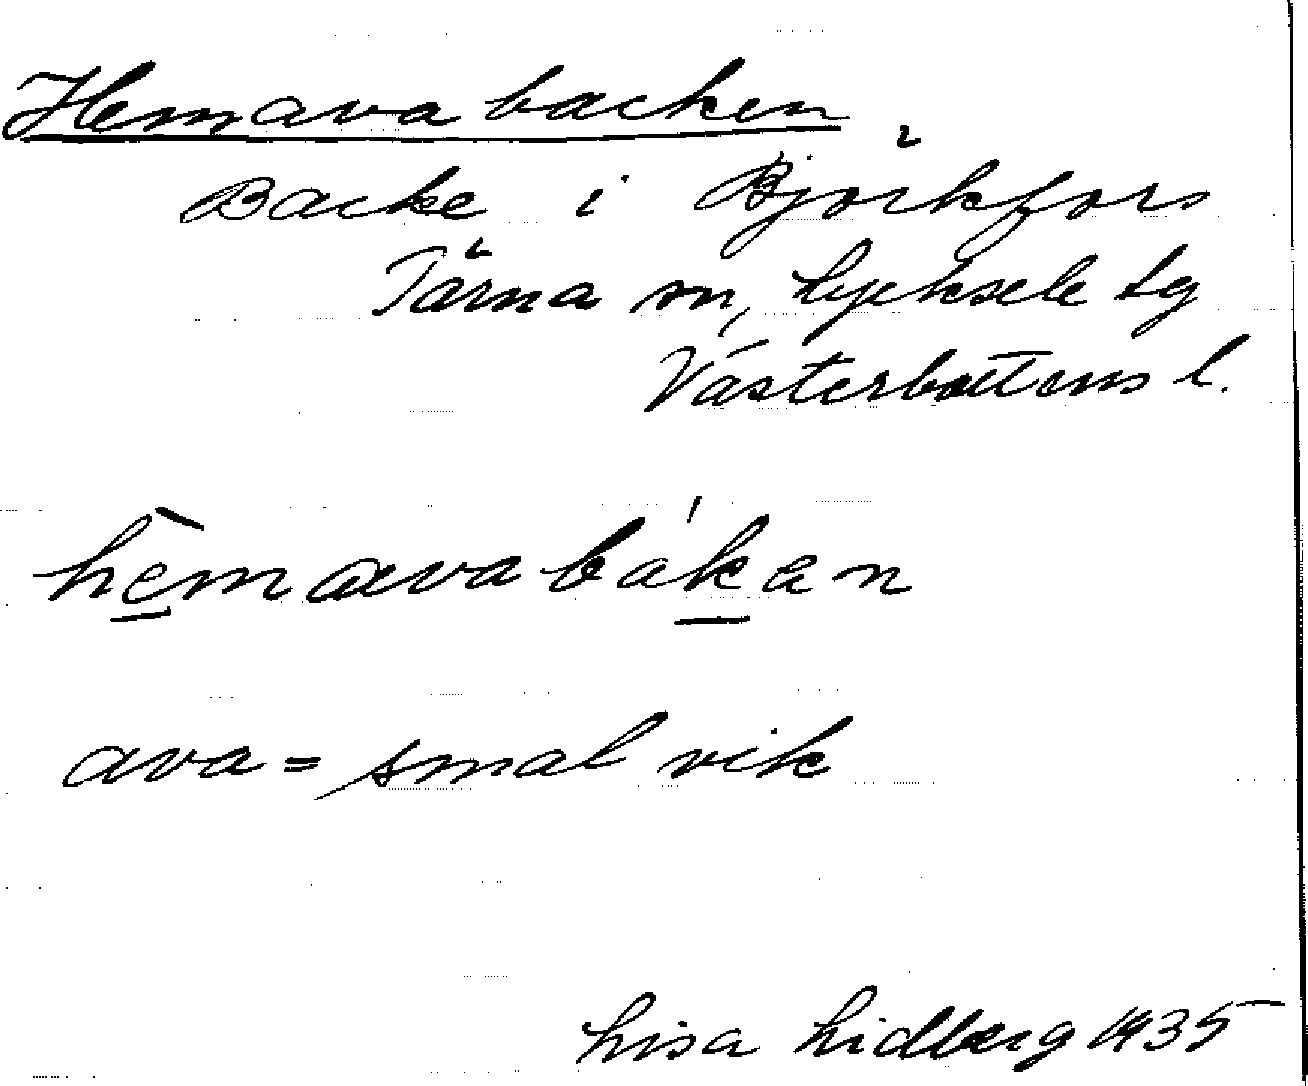 Hemavabacken
Backe i Björkfors
Tärna sn, Lycksele tg
Västerbottens l.
hèmavabákan
ava = smal vik
Lisa Lidberg 1935